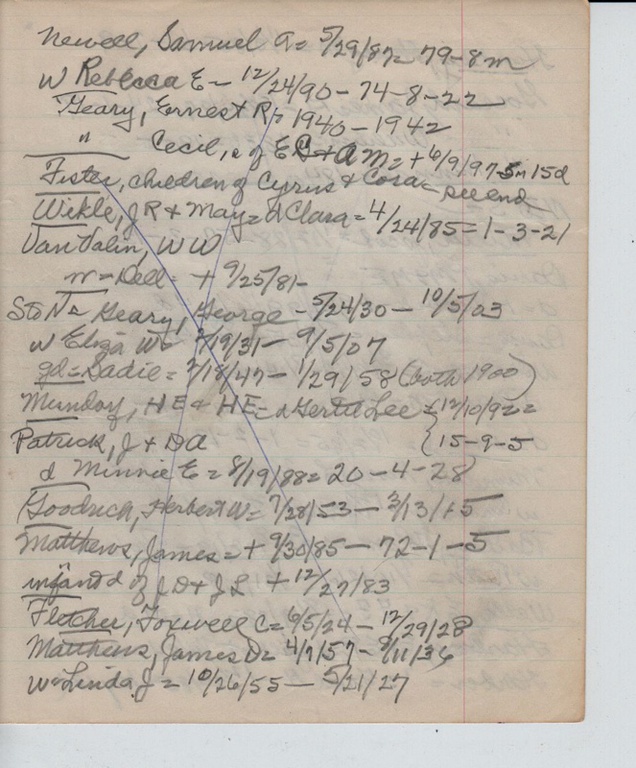 Newell, Samuel A = 5/29/87 = 79-8m
w Rebecca E - 12/24/90 - 74-8-22
Geary, Ernest R = 1940-1942
" Cecil, s of E C & A M = + 6/9/97 - 5m 15d
Fister, children of Cyrus & Cora - see end
Wikle, J R & May = d Clara = 4/24/85 = 1-3-21
VanValin, W W
w = Dell = + 9/25/81 -
StoNe Geary, George - 5/24/30 - 10/5/03
w Eliza W = 2/9/31 - 9/5/07
gd = Sadie = 2/18/47 - 1/29/58 (both 1900)
Munday, HE & HE = d Gertie Lee { 12/10/92 =
Patrick, J & DA { 15-9-5
d Minnie E = 8/19/88 = 20-4-28
Goodrich, Herbert W = 7/28/53 - 3/13/15
Matthews, James = + 9/30/85 - 72-1-5
infant d of J D & J L + 12/27/83
Fletcher, Foxwell C = 6/5/24 - 12/29/28
Matthews, James D = 4/7/57 - 8/11/36
w = Linda J = 10/26/55 - 5/21/27